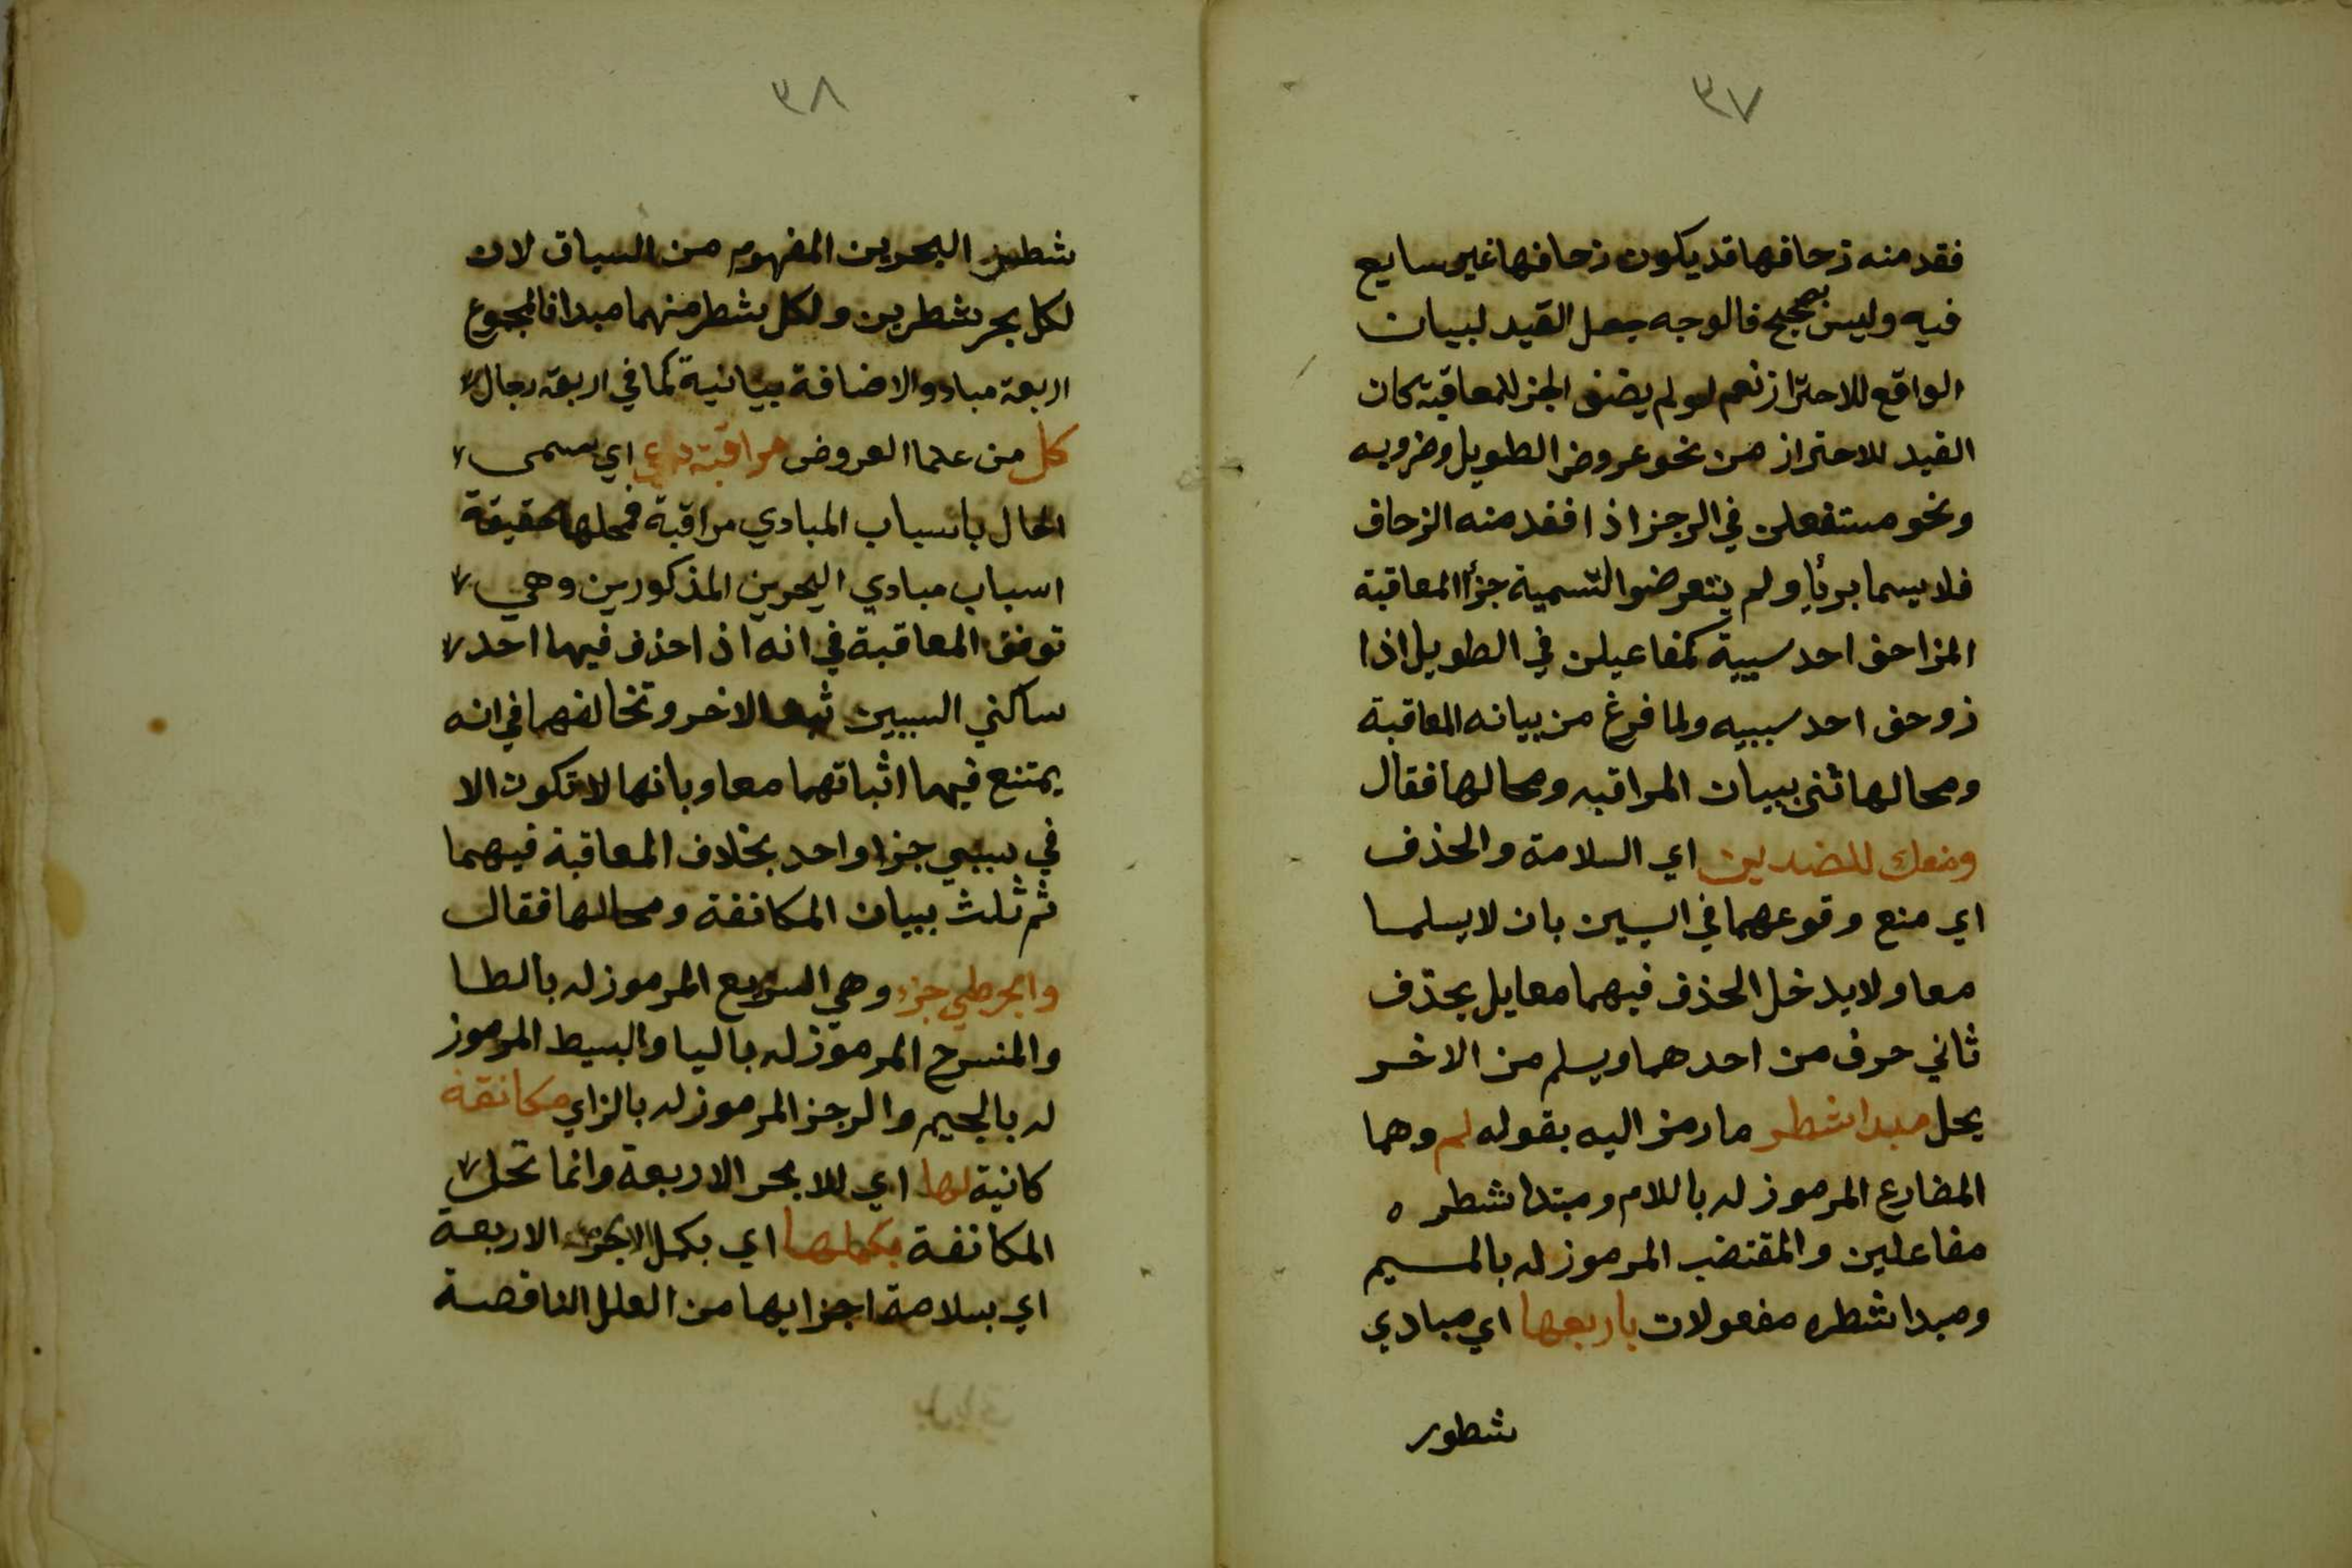 ٣٧
فقد منه زحافها قد يكون زحافها غير سايع
فيه وليس بصحيح فالوجه جعل القيد لبيان
الواقع للاحتراز نعم لو لم يضف الجز للمعاقبة كان
القيد للاحتراز من نحو عروض الطويل وضروبه
ونحو مستفعلن في الرجز اذا فقد منه الزحاف
فلا يسما بريا ولم يتعرضوا لتسمية جزأ المعاقبة
المزاحف احد سببية كمفاعيلن في الطويل اذا
زوحف احد سببيه ولما فرغ من بيانه المعاقبة
ومحالها ثنى ببيان المراقبه ومحالها فقال
ومنعك للضدين اي السلامة والحذف
اي منع وقوعهما في السببين بان لا يسلما
معا ولا يدخل الحذف فيهما معا بل يحذف
ثاني حرف من احدهما ويسلم من الاخر
يحل مبدا شطر ما رمز اليه بقوله لم وهما
المضارع المرموز له باللام ومبتدا شطره
مفاعلين والمقتضب المرموز له بالميم
ومبدا شطره مفعولات باربعها اي مبادي
شطور
٣٨
شطور البحرين المفهوم من السياق لان
لكل بحر شطرين ولكل شطر منهما مبدا فالمجموع
اربعة مباد والاضافة بيانية كما في اربعة رجال
كل من علما العروض مراقبة دعي اي سمى
الحال باسباب المبادي مراقبة فمحلها حقيقة
اسباب مبادي البحرين المذكورين وهي
توفق المعاقبة في انه اذا حذف فيهما احد
ساكني السببين ثبت الاخر وتخالفهما في انه
يمتنع فيهما اثباتهما معا وبانها لا تكون الا
في سببي جزا واحد بخلاف المعاقبة فيهما
ثم ثلث ببيان المكانفة ومحالها فقال
وابحر طي جز وهي السريع المرموز له بالطا
والمنسرح المرموز له باليا والبسيط المرموز
له بالجيم والرجز المرموز له بالزاي مكانفة
كانية لها اي للابحر الاربعة وانما تحل
المكانفة بكملها اي بكمل الابحر الاربعة
اي بسلامة اجزايها من العلل الناقصة